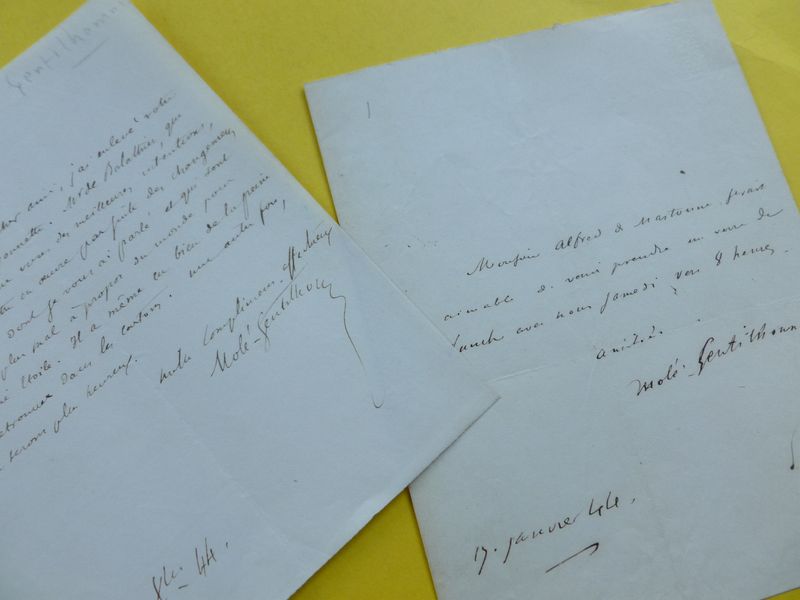 Gentilhomm
cher ami, j'ai enlevé votre
Mr de Balathier, qui
vous des meilleures intentions,
en œuvre par suite des changemens
dont je vous ai parlé et qui sont
plus mal à propos du monde pour
étoile. Il a même eu bien de la peine
retrouver dans les cartons. une autre fois,
serons plus heureux.
mille complimens affectueux
Molé-Gentilhomme
44.
Monsieur Alfred de Martonne serait
aimable de venir prendre un verre de
punch avec nous samedi vers 8 heures.
amitiés.
Molé-Gentilhomm
17. janvier 44.